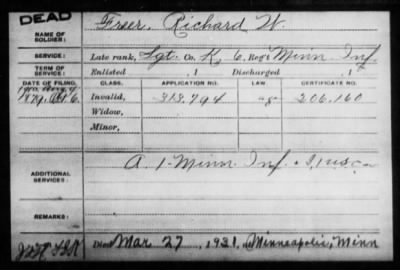 DEAD
NAME OF SOLDIER: Freer, Richard W.
SERVICE: Late rank, Sgt. Co. K, 6, Reg't Minn. Inf.
TERM OF SERVICE: Enlisted , 1 Discharged , 1
DATE OF FILING. CLASS. APPLICATION NO. LAW. CERTIFICATE NO.
1879, Oct. 6. Invalid, 313.794 206.160
Widow,
Minor,
ADDITIONAL SERVICES: A. 1- Minn. Inf.
REMARKS:
Died Mar 27, 1921, Minneapolis, Minn